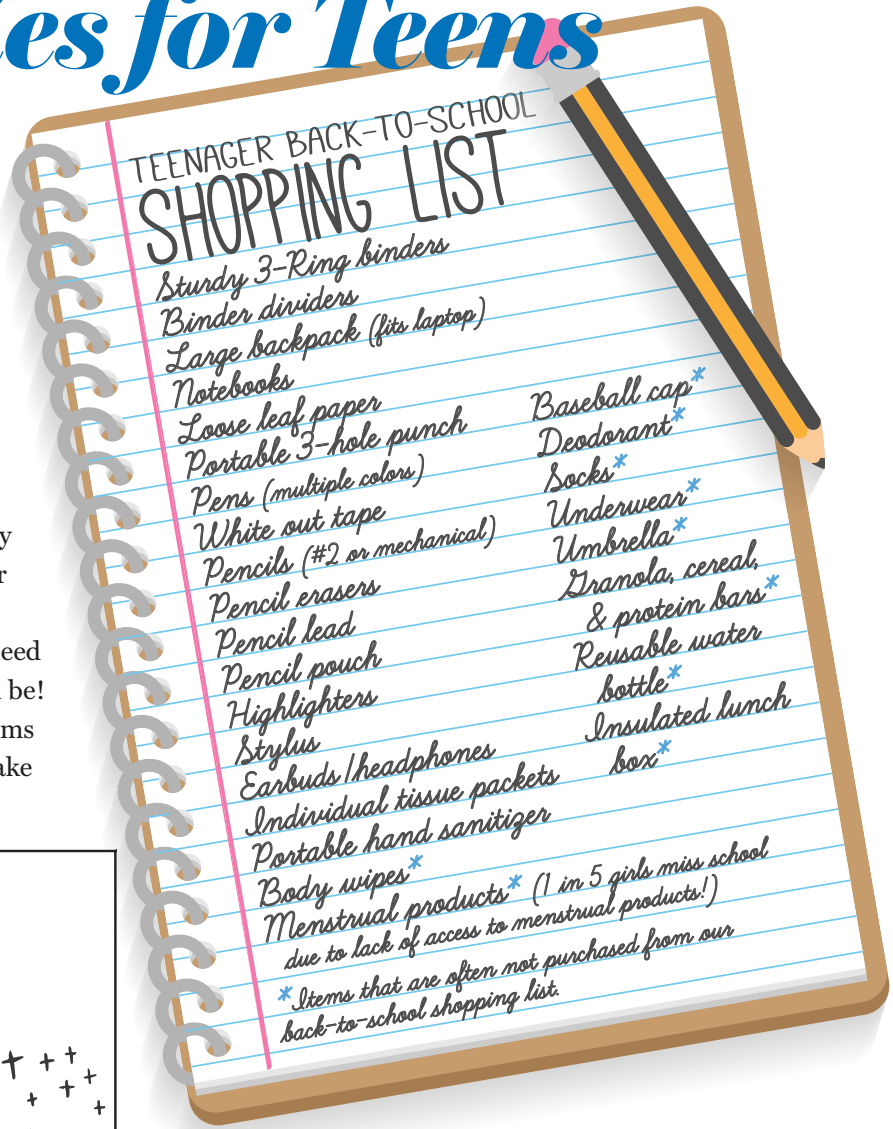 for Teens
TEENAGER BACK-TO-SCHOOL
SHOPPING LIST
Sturdy 3-Ring binders
Binder dividers
Large backpack (fits laptop)
Notebooks
Loose leaf paper
Portable 3-hole punch
Pens (multiple colors)
White out tape
Pencils (#2 or mechanical)
Pencil erasers
Pencil lead
Pencil pouch
Highlighters
Stylus
Earbuds/headphones
Individual tissue packets
Portable hand sanitizer
Body wipes*
Menstrual products* (1 in 5 girls miss school
due to lack of access to menstrual products!)
Baseball cap*
Deodorant*
Socks*
Underwear*
Umbrella*
Granola, cereal,
& protein bars*
Reusable water
bottle*
Insulated lunch
box*
*Items that are often not purchased from our
back-to-school shopping list.
be!